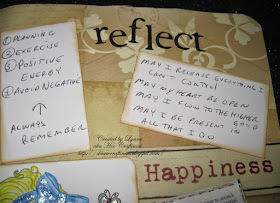 reflect
① PLANNING
② EXERCISE
③ POSITIVE
ENERGY
④ AVOID NEGATIVE
↑
ALWAYS
REMEMBER
MAY I RELEASE EVERYTHING I
CAN'T CONTROL
MAY MY HEART BE OPEN
MAY I FLOW TO THE HIGHER
GOOD
MAY I BE PRESENT IN
ALL THAT I DO
Created by Lynn
aka Hoo Crafternoon
Happiness